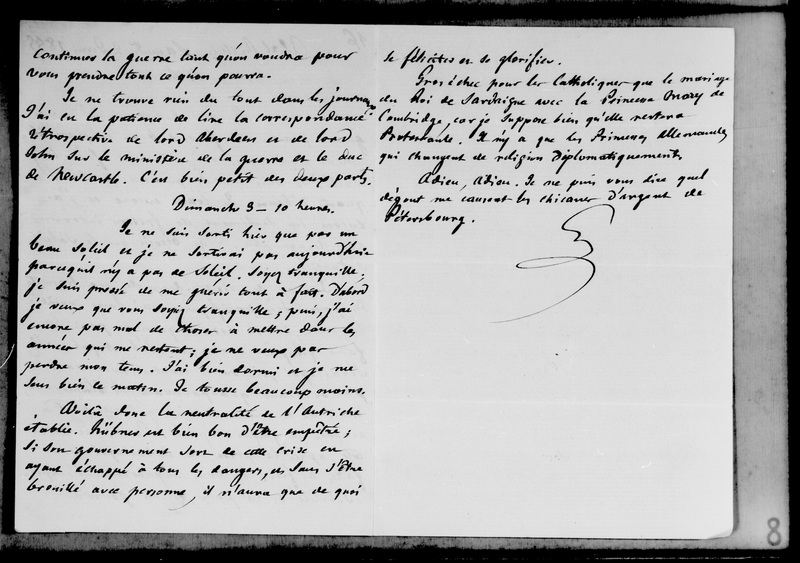 continuer la guerre tant qu'on voudra pour
vous prendre tout ce qu'on pourra.
Je ne trouve rien du tout dans les journaux
J'ai eu la patience de lire la correspondance
rétrospective de lord Aberdeen et de lord
John sur le ministère de la guerre et le duc
de Newcastle. C'est bien petit des deux parts.
Dimanche 3 - 10 heures.
Je ne suis sorti hier que par un
beau soleil et je ne sortirai pas aujourd'hui
parcequ'il n'y a pas de soleil. Soyez tranquille;
je suis pressé de me guérir tout à fait. D'abord
je veux que vous soyez tranquille; puis, j'ai
encore pas mal de choses à mettre dans les
années qui me restent; je ne veux pas
perdre mon tems. J'ai bien dormi et je me
sens bien le matin. Je tousse beaucoup moins.
Voilà donc la neutralité de l'Autriche
établie. Hübner est bien bon d'être empêtré;
si son gouvernement sort de cette crise en
ayant échappé à tous les dangers, et sans s'être
brouillé avec personne, il n'aura que de quoi
se féliciter et se glorifier.
Gros échec pour les Catholiques que le mariage
du Roi de Sardaigne avec la Princesse Mary de
Cambridge, car je suppose bien qu'elle restera
Protestante. Il n'y a que les Princesses Allemandes
qui changent de religion diplomatiquement.
Adieu, Adieu. Je ne puis vous dire quel
dégout me causent les chicanes d'argent de
Pétersbourg.
8